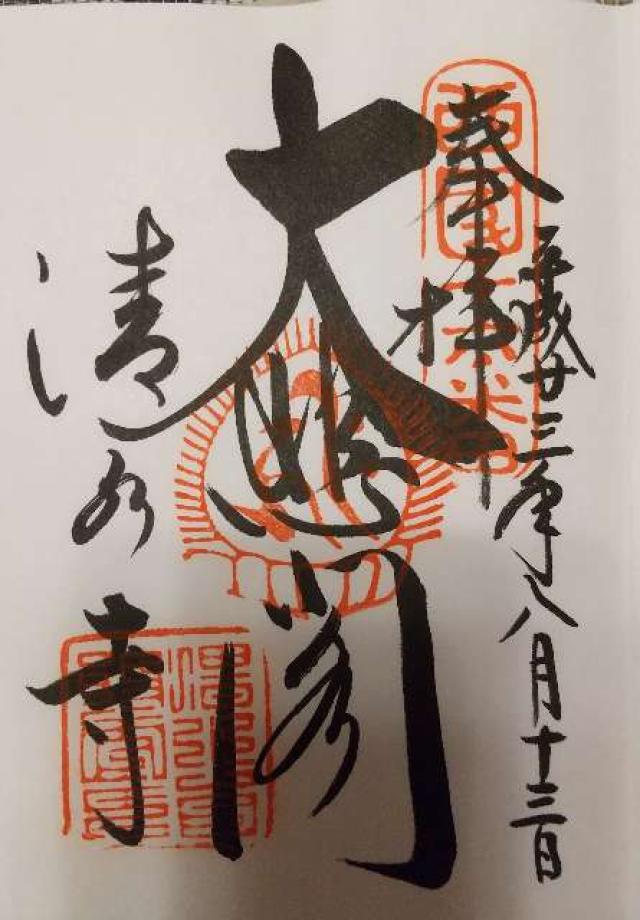 奉拝
平成廿三年八月十三日
大悲閣
清水寺